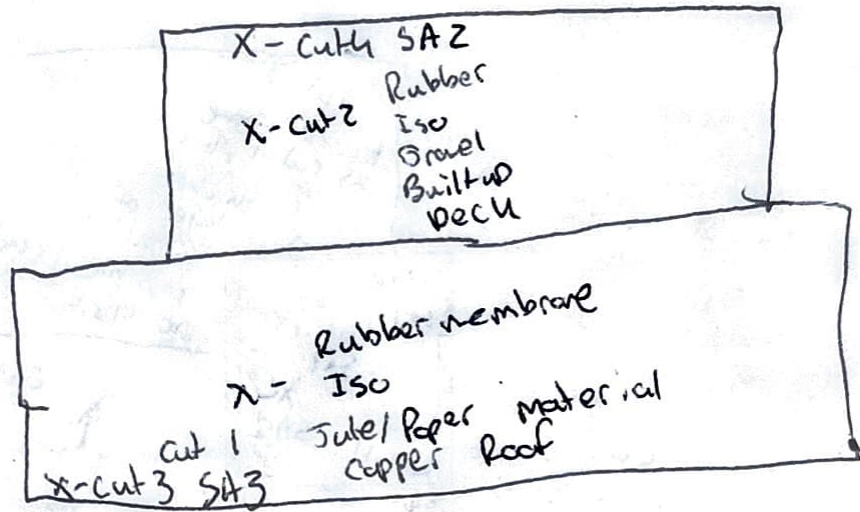 X - Cut 4 SA2
Rubber
X - Cut 2 Iso
Gravel
Built up
Deck
Rubber membrane
X - Iso
Cut 1 Jute/Paper material
Copper Roof
X-Cut 3 SA3